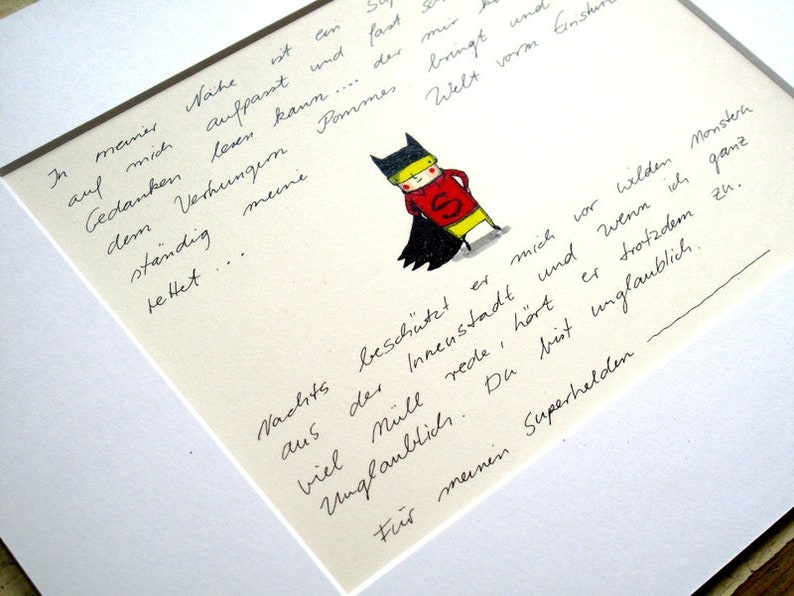 In meiner Nähe ist ein
auf mich aufpasst und fast
Gedanken lesen kann.... der mir
dem Verhungern Pommes bringt und
ständig meine Welt vorm Einsturz
rettet...
S
Nachts beschützt er mich vor wilden Monstern
aus der Innenstadt und wenn ich ganz
viel Müll rede, hört er trotzdem zu.
Unglaublich. Du bist unglaublich.
Für meinen Superhelden